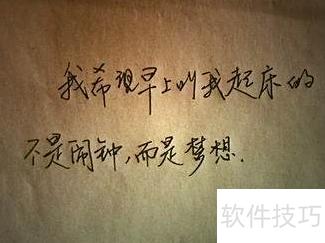 我希望早上叫我起床的
不是闹钟,而是梦想.
软件技巧